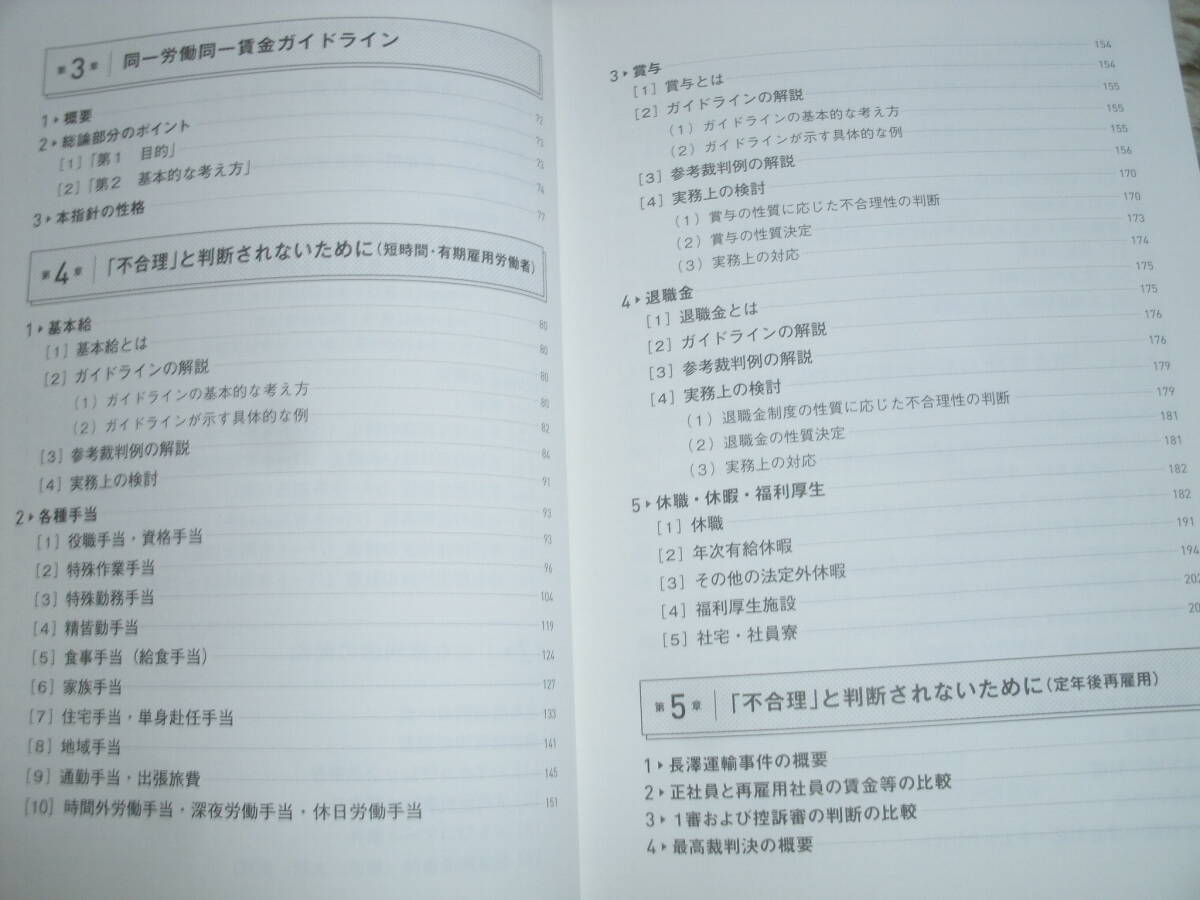 第3章 同一労働同一賃金ガイドライン
1▶概要 72
2▶総論部分のポイント 73
［1］「第1 目的」 73
［2］「第2 基本的な考え方」 74
3▶本指針の性格 77
第4章 「不合理」と判断されないために（短時間・有期雇用労働者）
1▶基本給 80
［1］基本給とは 80
［2］ガイドラインの解説 80
（1）ガイドラインの基本的な考え方 80
（2）ガイドラインが示す具体的な例 82
［3］参考裁判例の解説 84
［4］実務上の検討 91
2▶各種手当 93
［1］役職手当・資格手当 93
［2］特殊作業手当 96
［3］特殊勤務手当 104
［4］精皆勤手当 119
［5］食事手当（給食手当） 124
［6］家族手当 127
［7］住宅手当・単身赴任手当 133
［8］地域手当 141
［9］通勤手当・出張旅費 145
［10］時間外労働手当・深夜労働手当・休日労働手当 151
3▶賞与 154
［1］賞与とは 154
［2］ガイドラインの解説 155
（1）ガイドラインの基本的な考え方 155
（2）ガイドラインが示す具体的な例 155
［3］参考裁判例の解説 156
［4］実務上の検討 170
（1）賞与の性質に応じた不合理性の判断 170
（2）賞与の性質決定 173
（3）実務上の対応 174
4▶退職金 175
［1］退職金とは 175
［2］ガイドラインの解説 176
［3］参考裁判例の解説 176
［4］実務上の検討 179
（1）退職金制度の性質に応じた不合理性の判断 179
（2）退職金の性質決定 181
（3）実務上の対応 181
5▶休職・休暇・福利厚生 182
［1］休職 182
［2］年次有給休暇 191
［3］その他の法定外休暇 194
［4］福利厚生施設 202
［5］社宅・社員寮 20
第5章 「不合理」と判断されないために（定年後再雇用）
1▶長澤運輸事件の概要
2▶正社員と再雇用社員の賃金等の比較
3▶1審および控訴審の判断の比較
4▶最高裁判決の概要